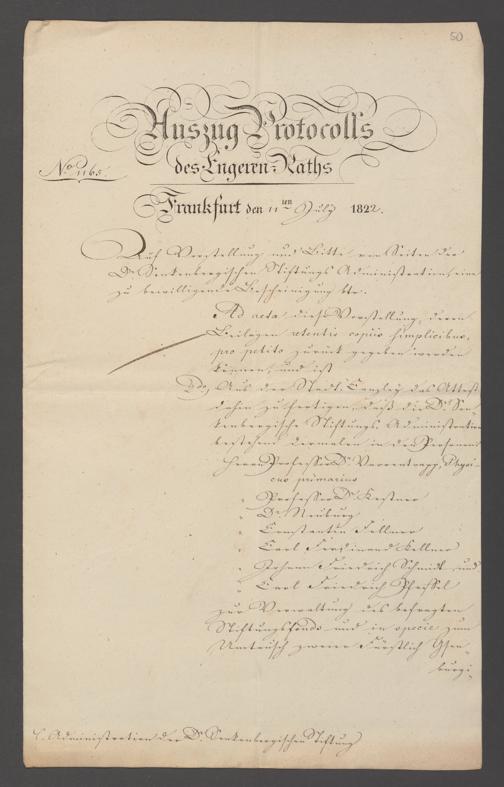 50
Auszug Protocolls
des Engeren Raths
No. 1165.
Frankfurt den 11ten July 1822.
Auf Vorstellung und Bitte von Seiten der
Dr. Senkenbergischen Stiftungs Administration, eine
zu bewilligende Bescheinigung btr.
Ad acta diese Vorstellung, deren
Beilagen retentis copiis simplicibus,
pro petito zurück gegeben werden
können, und ist
Aus der Stadt-Canzley das Attest
dahin zu fertigen, daß die Dr. Sen-
kenbergische Stiftungs Administration
bestehe dermalen in den Personen
Herrn Professor Dr. Varrentrapp, Physi-
cus primarius
" Professor Dr. Kestner
" Dr. Neuburg
" Constantin Fellner
" Carl Ferdinand Kellner
" Johann Friedrich Schmidt und
" Carl Friedrich Pfeiffel
zur Verwaltung des besagten
Stiftungsfonds und in specie zum
Umtausch zweier Fürstlich Ysen-
burgi-
l. Administration der Dr. Senkenbergischen Stiftung